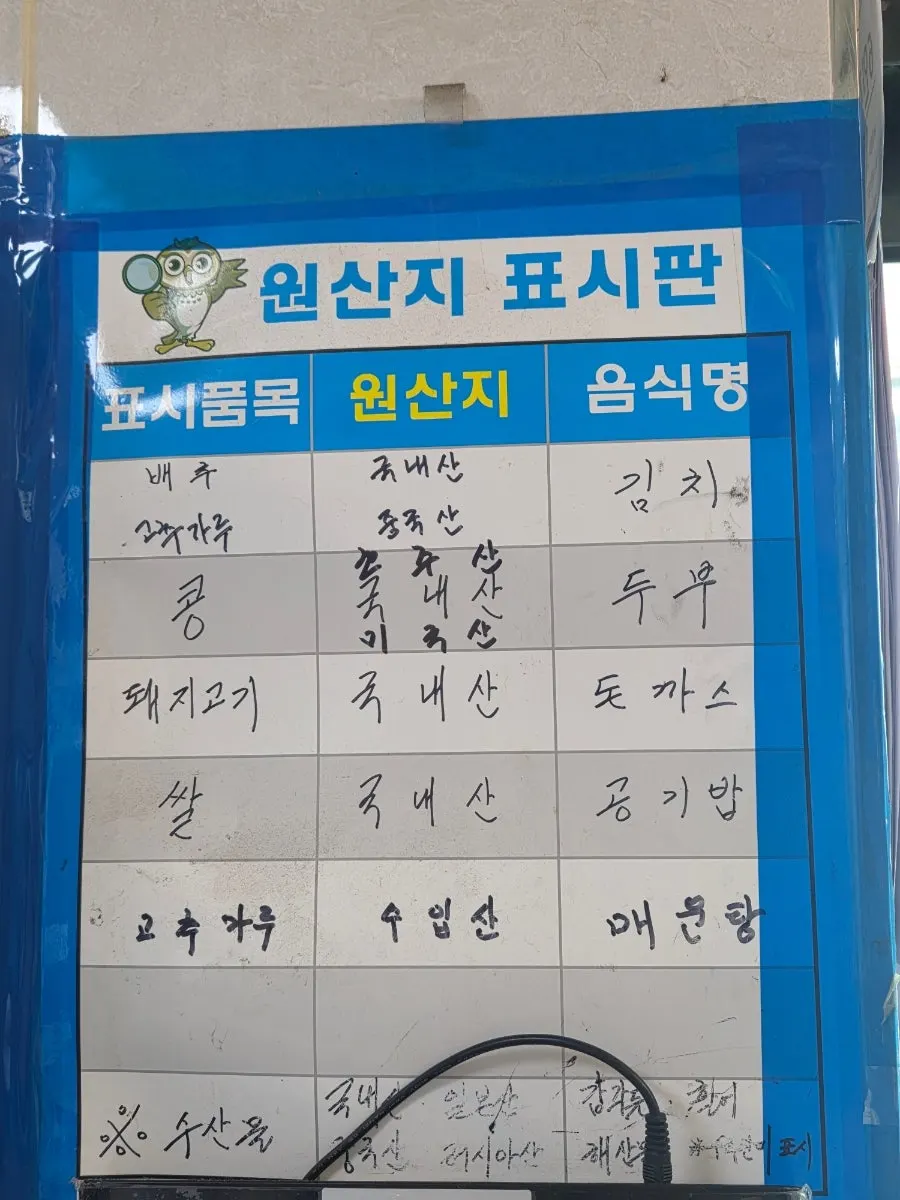 원산지 표시판
표시품목 원산지 음식명
배추 국내산 김치
고추가루 중국산
콩 호주산 국내산 미국산 두부
돼지고기 국내산 돈까스
쌀 국내산 공기밥
고추가루 수입산 매운탕
※ 수산물 국내산 일본산 갑각류·활어
중국산 러시아산 표시